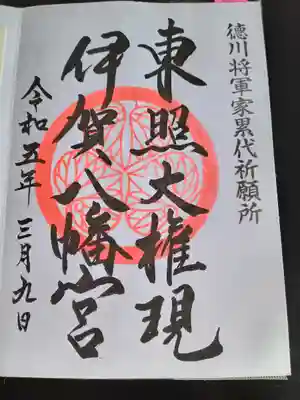 德川将軍家累代祈願所
東照大権現
伊賀八幡宮
令和五年 三月九日